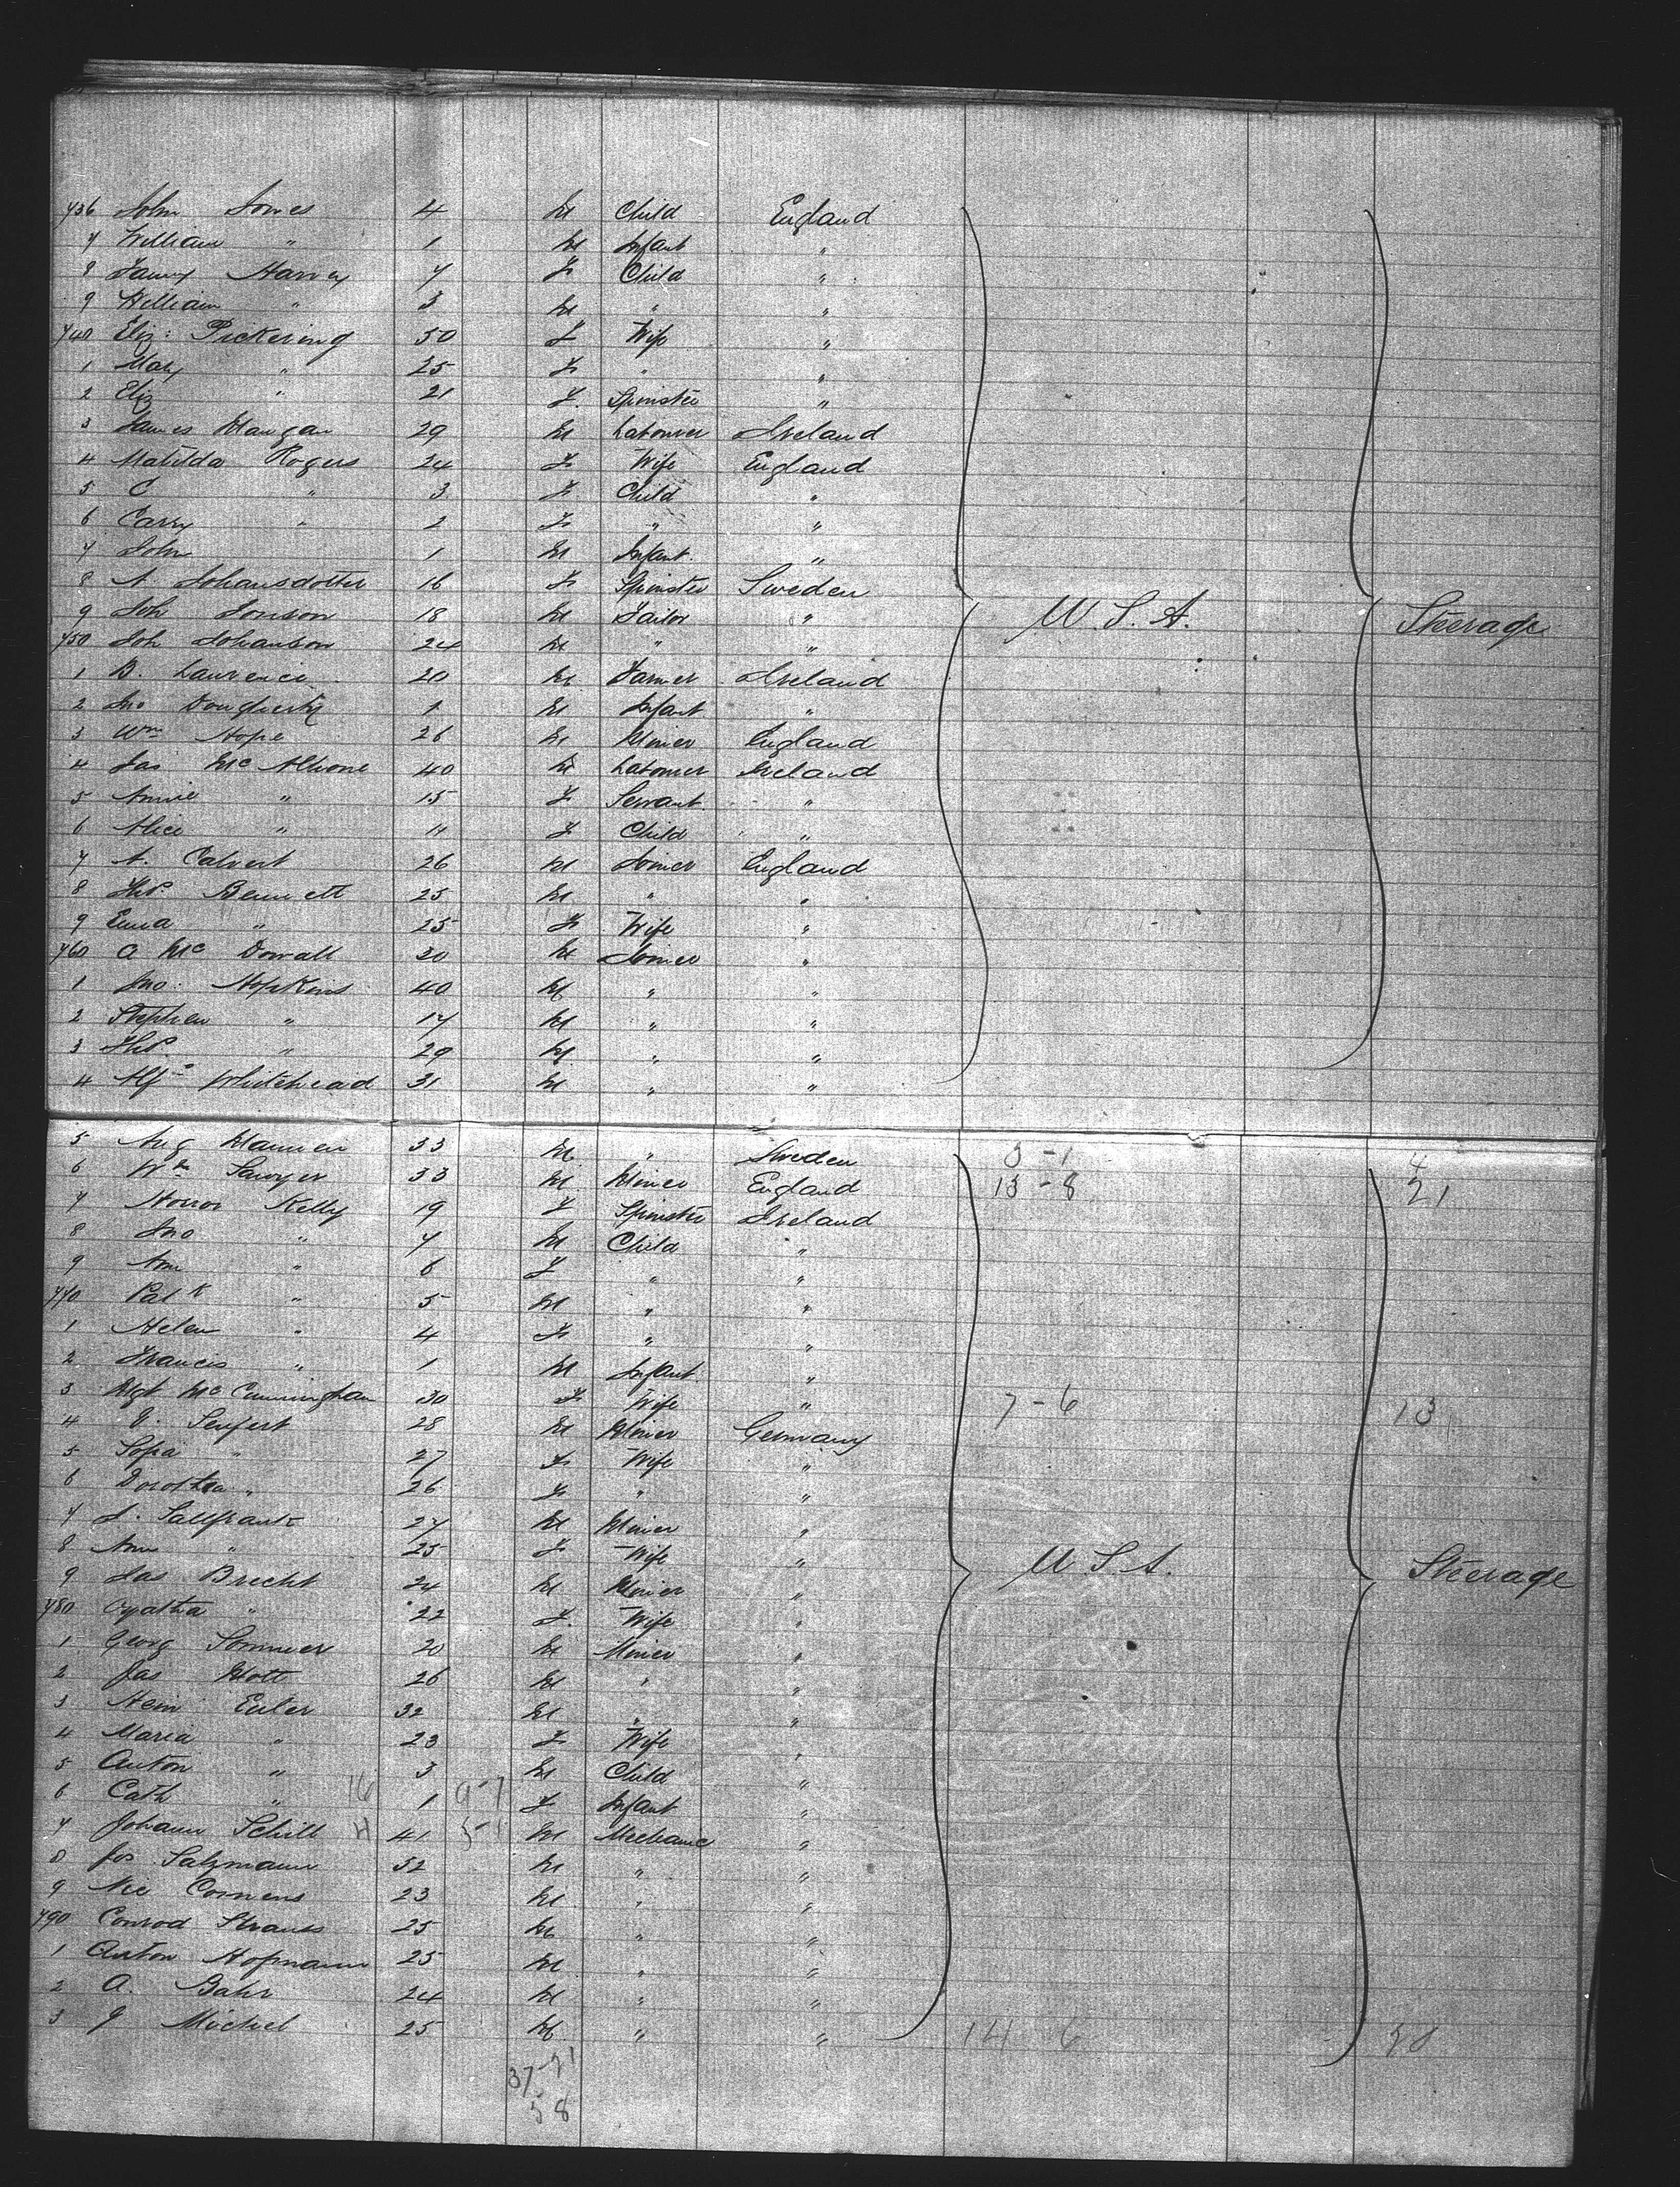 736 John Jones 4 M Child England
7 William " 1 M Infant "
8 Fanny Harvey 7 F Child "
9 William " 3 M " "
740 Eliz: Pickering 50 F Wife "
1 Mary " 25 F " "
2 Eliz " 21 F. Spinster "
3 James Mangan 29 M Labourer Ireland
4 Matilda Rogers 24 F Wife England
5 C " 3 F Child "
6 Carry " 2 F " "
7 John 1 M Infant. "
8 A. Johansdotter 16 F Spinster Sweden
9 Joh Jonson 18 M Tailor " U.S.A. Steerage
750 Joh Johanson 24 M " "
1 B. Laurence 20 M. Farmer Ireland
2 Jno Dougherty 1 M Infant "
3 Wm Hope 26 M Miner England
4 Jas McAleone 40 M Labourer Ireland
5 Annie " 15 F Servant "
6 Alice " 11 F Child "
7 A. Calvert 26 M Joiner England
8 Thos Bennett 25 M " "
9 Emma " 25 F Wife "
760 A McDowall 30 M Joiner "
1 Jno. Hopkins 40 M " "
2 Stephen " 17 M " "
3 Thos. " 29 M " "
4 Alfd Whitehead 31 M " "
5 Aug Hannen 33 M " Sweden 3-1 4
6 Wm Sawyer 33 M. Miner England 13-8 21
7 Honor Kelly 19 F Spinster Ireland
8 Jno " 7 M Child "
9 Ann " 6 F " "
770 Patk " 5 M " "
1 Helen " 4 F " "
2 Francis " 1 M Infant "
3 Mgt McCunningham 30 F Wife " 7-6 13
4 G. Seufert 28 M Miner Germany
5 Sofia " 27 F Wife "
6 Dorothea " 26 F " "
7 J. Sallfrank 27 M Miner "
8 Ann " 25 F Wife "
9 Jas Brecht 24 M Miner " U.S.A. Steerage
780 Agatha " 22 F. Wife "
1 Georg Sommer 20 M Miner "
2 Jas Mott 26 M " "
3 Hein Euler 32 M " "
4 Maria " 23 F Wife "
5 Anton " 3 M Child "
6 Cath " 16 1 9-7 F Infant "
7 Johann Schill 4 41 3-1 M Mechanic "
8 Jos Salzmann 52 M " "
9 Nic Cornens 23 M " "
790 Conrod Strauss 25 M " "
1 Anton Hofmann 25 M " "
2 A. Bahr 24 M " "
3 J Michel 25 M " " 14 6 20
37-21
58